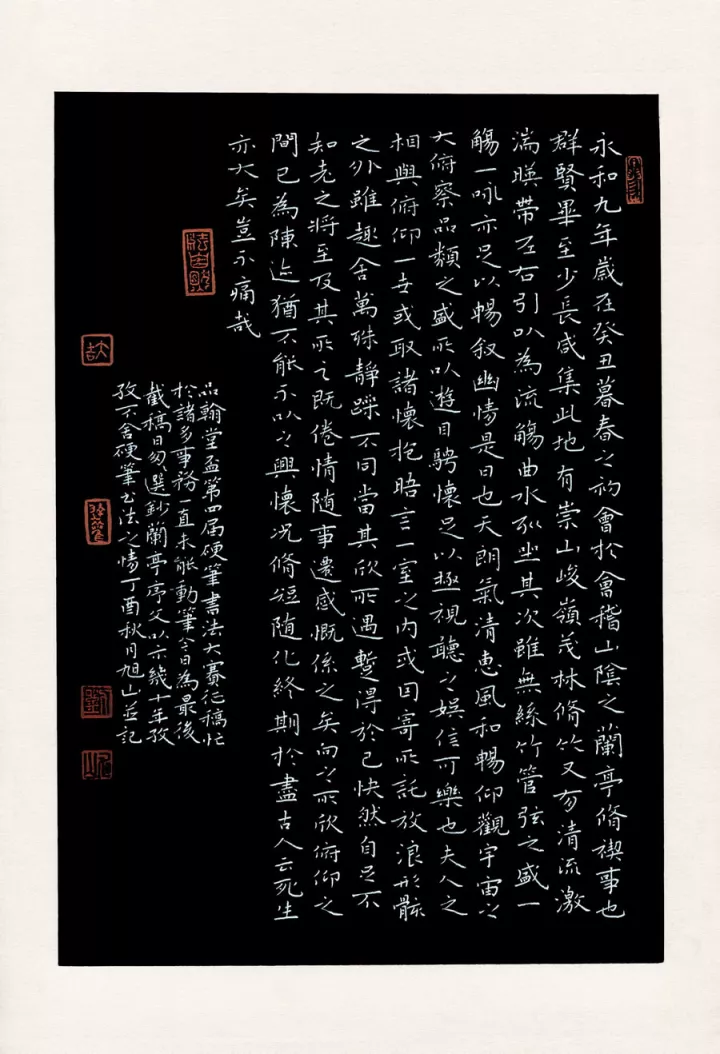 永和九年歲在癸丑暮春之初會於會稽山陰之蘭亭脩禊事也
群賢畢至少長咸集此地有崇山峻嶺茂林脩竹又有清流激
湍暎帶左右引以為流觴曲水列坐其次雖無絲竹管弦之盛一
觴一咏亦足以暢叙幽情是日也天朗氣清惠風和暢仰觀宇宙之
大俯察品類之盛所以遊目騁懷足以極視聽之娛信可樂也夫人之
相與俯仰一世或取諸懷抱晤言一室之內或因寄所託放浪形骸
之外雖趣舍萬殊靜躁不同當其欣所遇暫得於己快然自足不
知老之將至及其所之既倦情隨事遷感慨係之矣向之所欣俯仰之
間已為陳迹猶不能不以之興懷況脩短隨化終期於盡古人云死生
亦大矣豈不痛哉
品翰堂盃第四届硬筆書法大賽征稿忙
於諸多事務一直未能動筆今日為最後
截稿日匆選鈔蘭亭序文以示幾十年孜
孜不舍硬筆書法之情丁酉秋月旭山並記